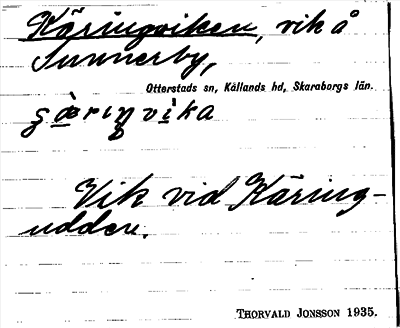 Käringviken, vik å
Sunnerby,
Otterstads sn, Kållands hd, Skaraborgs län.
Vik vid Käring-
udden.
THORVALD JONSSON 1935.